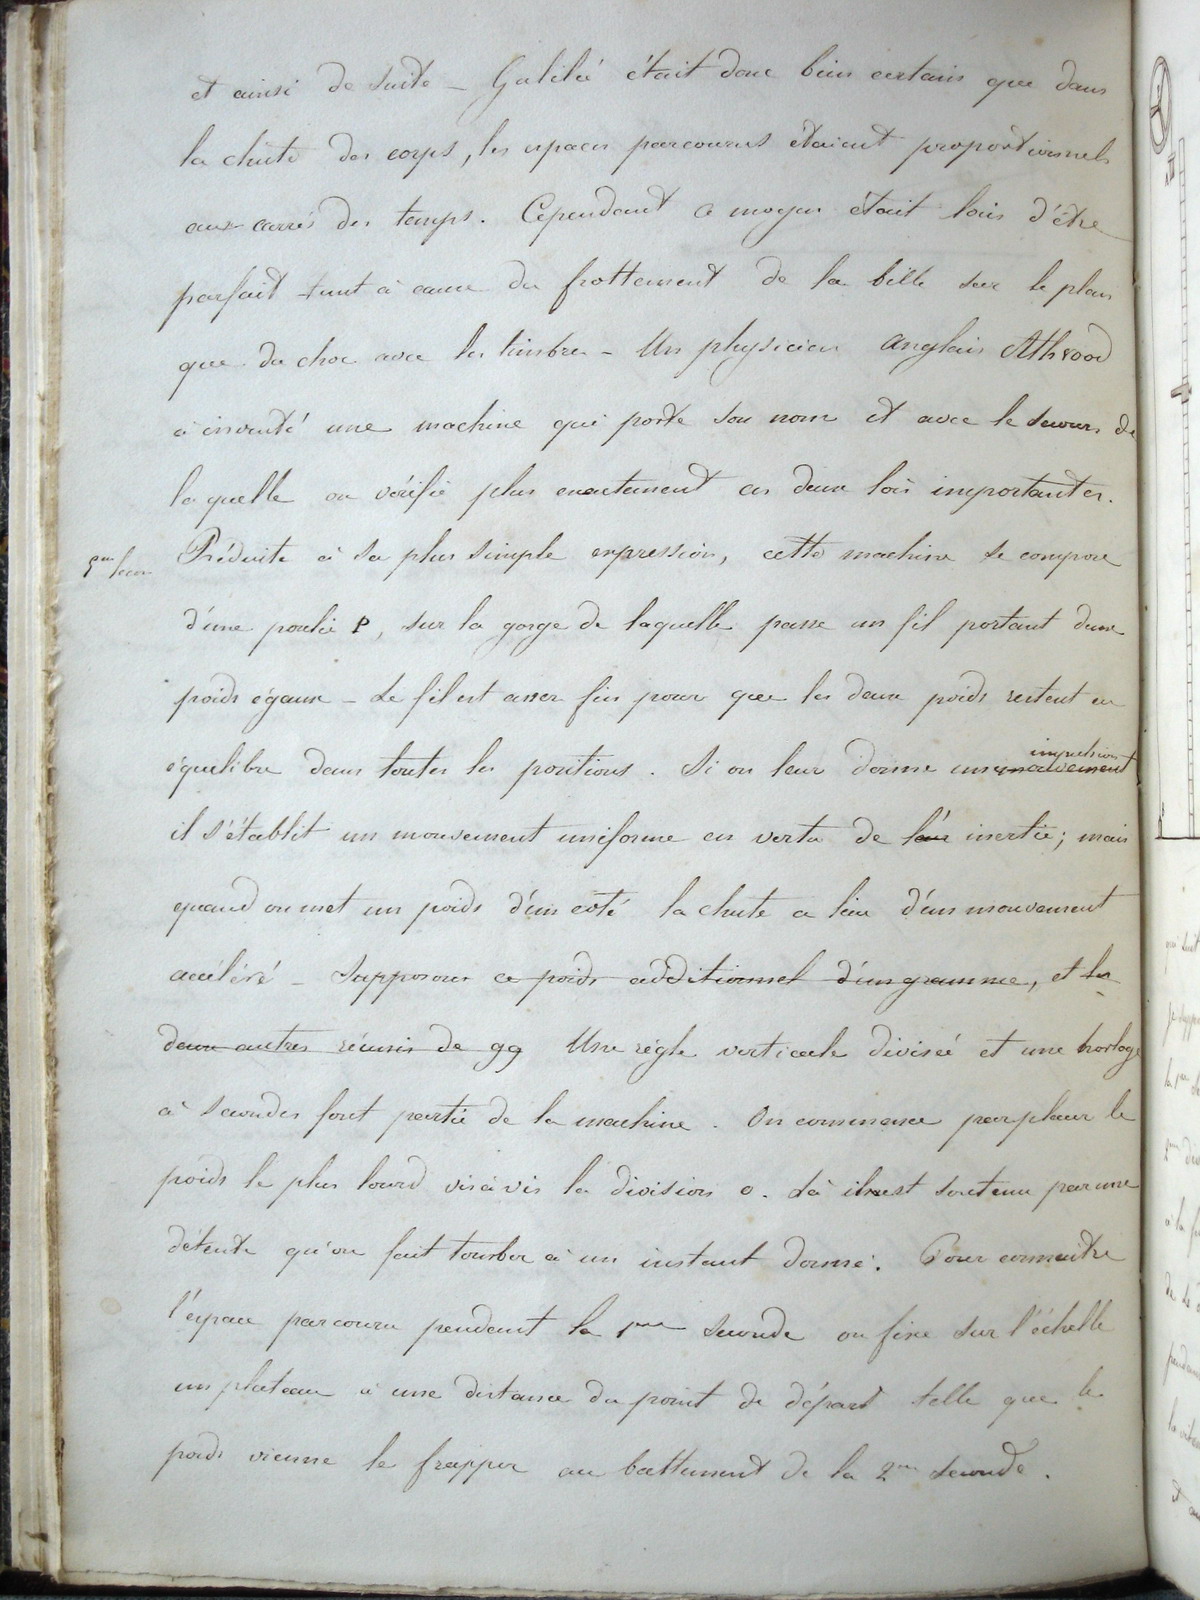 et ainsi de suite – Galilée était donc bien certain que dans
la chute des corps, les espaces parcourus étaient proportionnels
aux carrés des temps. Cependant ce moyen était loin d'être
parfait tant à cause du frottement de la bille sur le plan
que du choc avec les timbres – Un physicien Anglais Athvood
à inventé une machine qui porte son nom et avec le secours de
la quelle on vérifie plus exactement ces deux lois importantes.
5me leçon
Réduite à sa plus simple expression, cette machine se compose
d'une poulie P, sur la gorge de laquelle passe un fil portant deux
poids égaux – Le fil est assez fin pour que les deux poids restent en
impulsion
équilibre dans toutes les positions. Si on leur donne une mouvement
il s'établit un mouvement uniforme en vertu de leur inertie; mais
quand on met un poids d'un côté la chute a lieu d'un mouvement
accéléré – Supposons ce poids additionnel d'un gramme, et les
deux autres réunis de 99 Une règle verticale divisée et une horloge
à secondes font partie de la machine. On commence par placer le
poids le plus lourd vis à vis la division 0. Là il est soutenu par une
détente qu'on fait tomber à un instant donné. Pour connaitre
l'espace parcouru pendant la 1ere seconde on fixe sur l'échelle
un plateau à une distance du point de départ telle que le
poids vienne le frapper au battement de la 2me seconde.